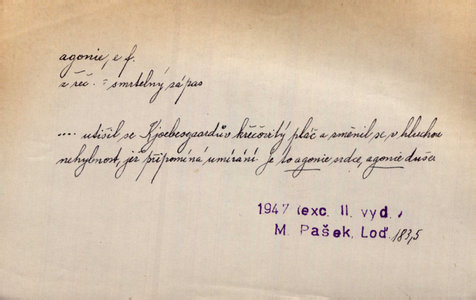 agonie, e f.
z řeč. = smrtelný zápas
.... utišil se Kjoebegaardův křečovitý pláč a změnil se v hluchou
nehybnost, jež připomíná umírání. Je to agonie srdce, agonie duše.
1947 (exc. II. vyd.)
M. Pašek, Loď. 183,5